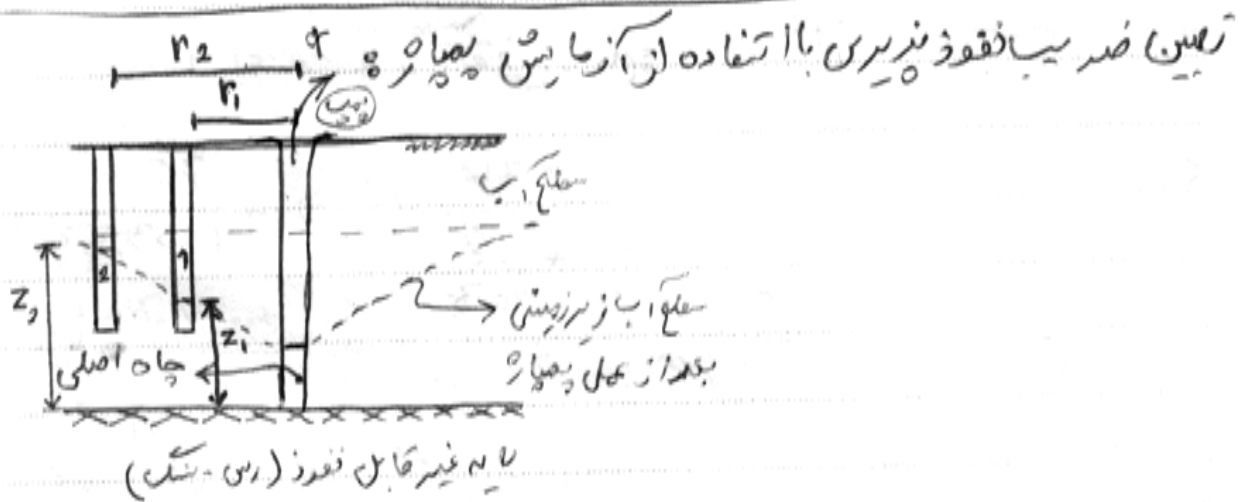 تعیین ضریب نفوذ پذیری با استفاده از آزمایش پمپاژ :
r2
q
r1
پمپ
سطح آب
2
1
Z2
Z1
سطح آب زیرزمینی
بعد از عمل پمپاژ
چاه اصلی
لایه غیر قابل نفوذ (رس - سنگ)